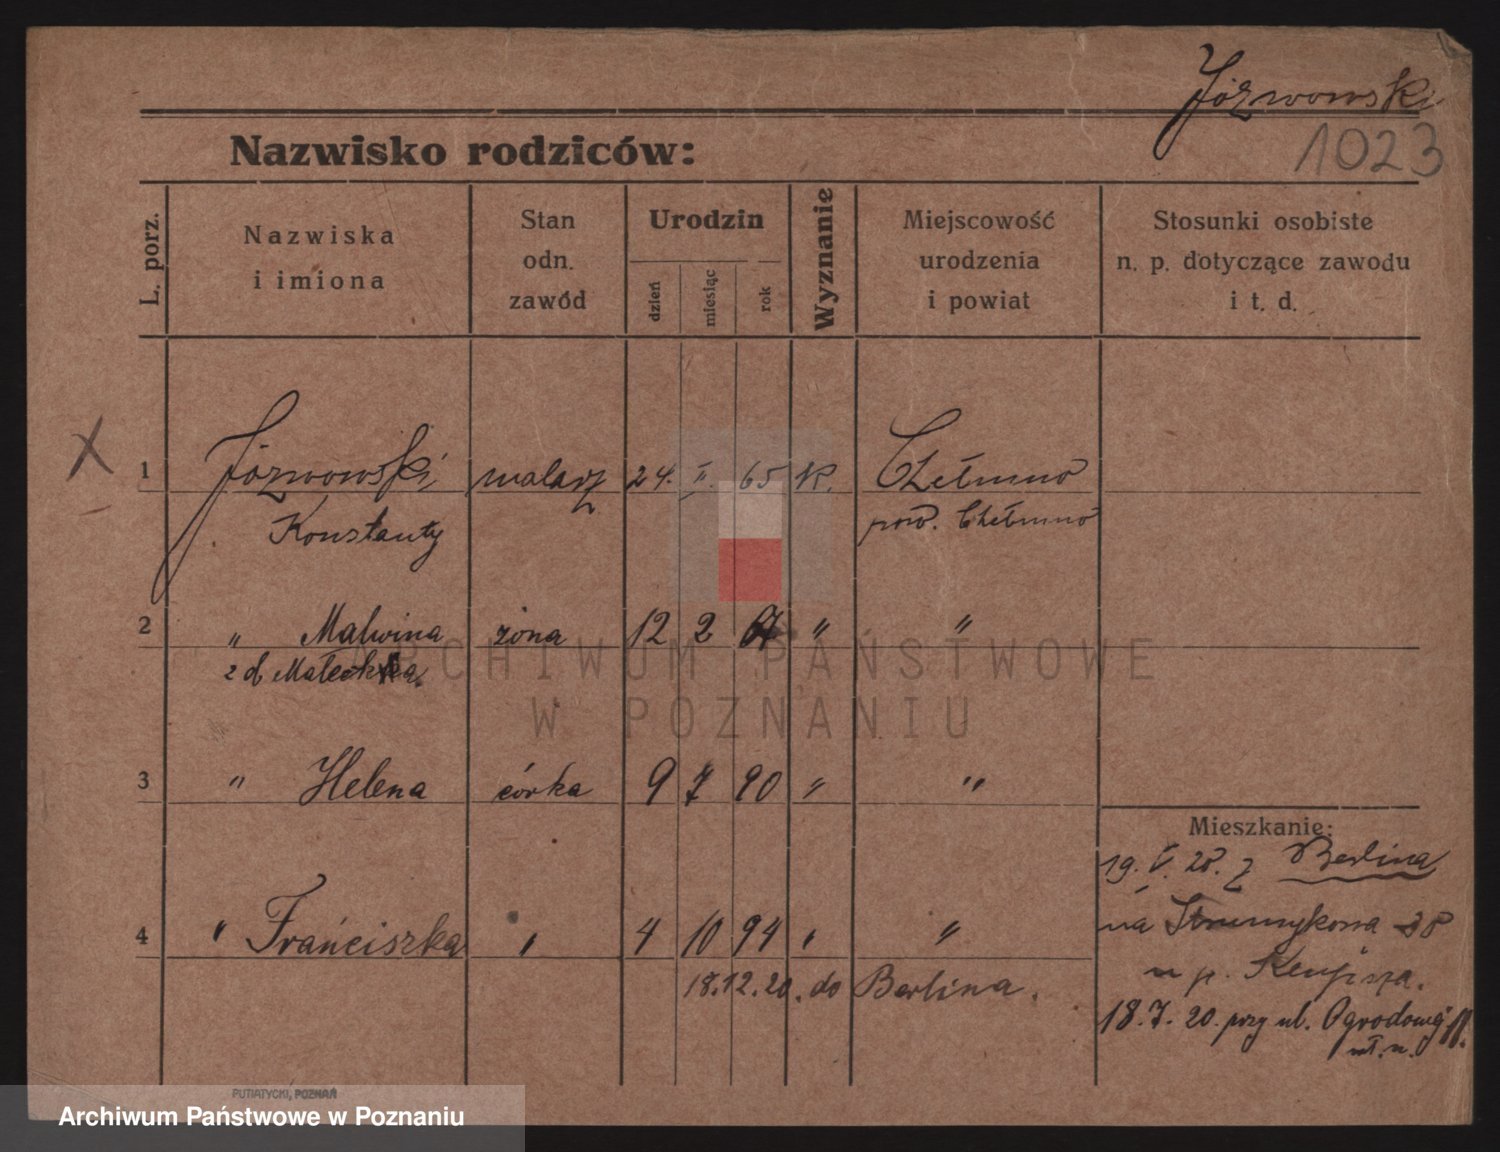 Józwowski
1023
Nazwisko rodziców:
L. porz.
Nazwiska
i imiona
Stan
odn.
zawód
Urodzin
dzień
miesiąc
rok
Wyznanie
Miejscowość
urodzenia
i powiat
Stosunki osobiste
n. p. dotyczące zawodu
i t. d.
X
1 Józwowski malarz 24. II. 65 K. Chełmno
Konstanty pow. Chełmno
2 " Malwina żona 12 2 " "
z d. Małecka
3 " Helena córka 9 7 90 " "
4 " Frańciszka " 4 10 94 " "
18.12.20. do Berlina.
Mieszkanie:
19. V. 20. z Berlina
na Strumykowa 38
u p.
18.7.20. przy ul. Ogrodowej 11.
ARCHIWUM PAŃSTWOWE
W POZNANIU
PUTIATYCKI, POZNAŃ
Archiwum Państwowe w Poznaniu